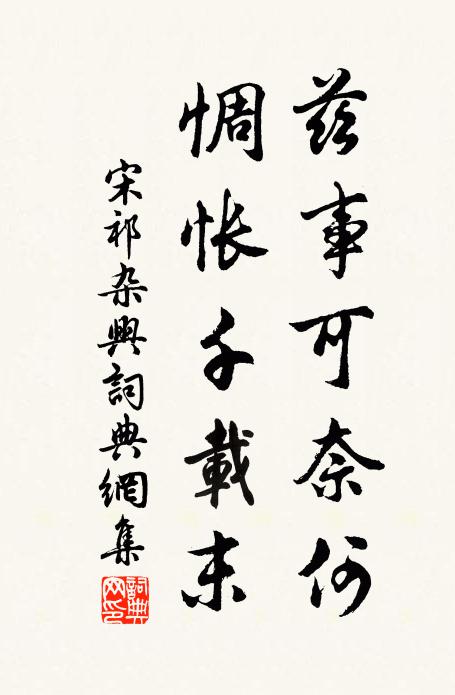 兹事可奈何
惆怅千載末
宋祁杂興詞典網集
詞典网印